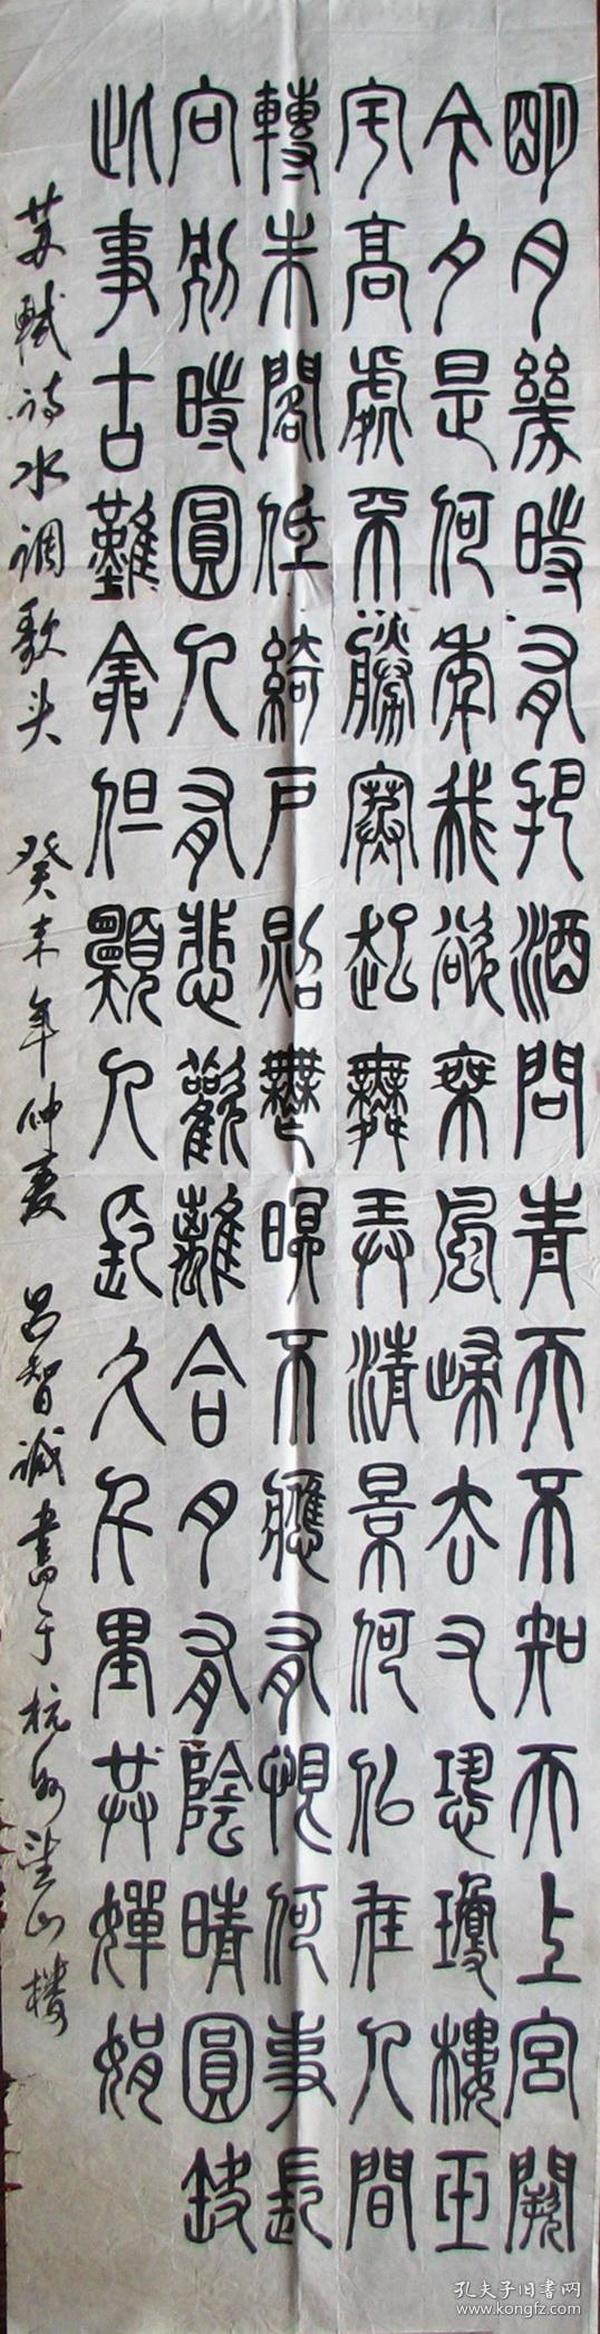 明月幾時有把酒問青天不知天上宮闕
今夕是何年我欲乘風歸去又恐瓊樓玉
宇高處不勝寒起舞弄清景何似在人間
轉朱閣低綺戶照無眠不應有恨何事長
向別時圓人有悲歡離合月有陰晴圓缺
此事古難全但願人長久千里共嬋娟
苏軾诗水调歌头 癸未年仲夏 吕智诚書于杭州望山楼
孔夫子旧书网
www.kongfz.com